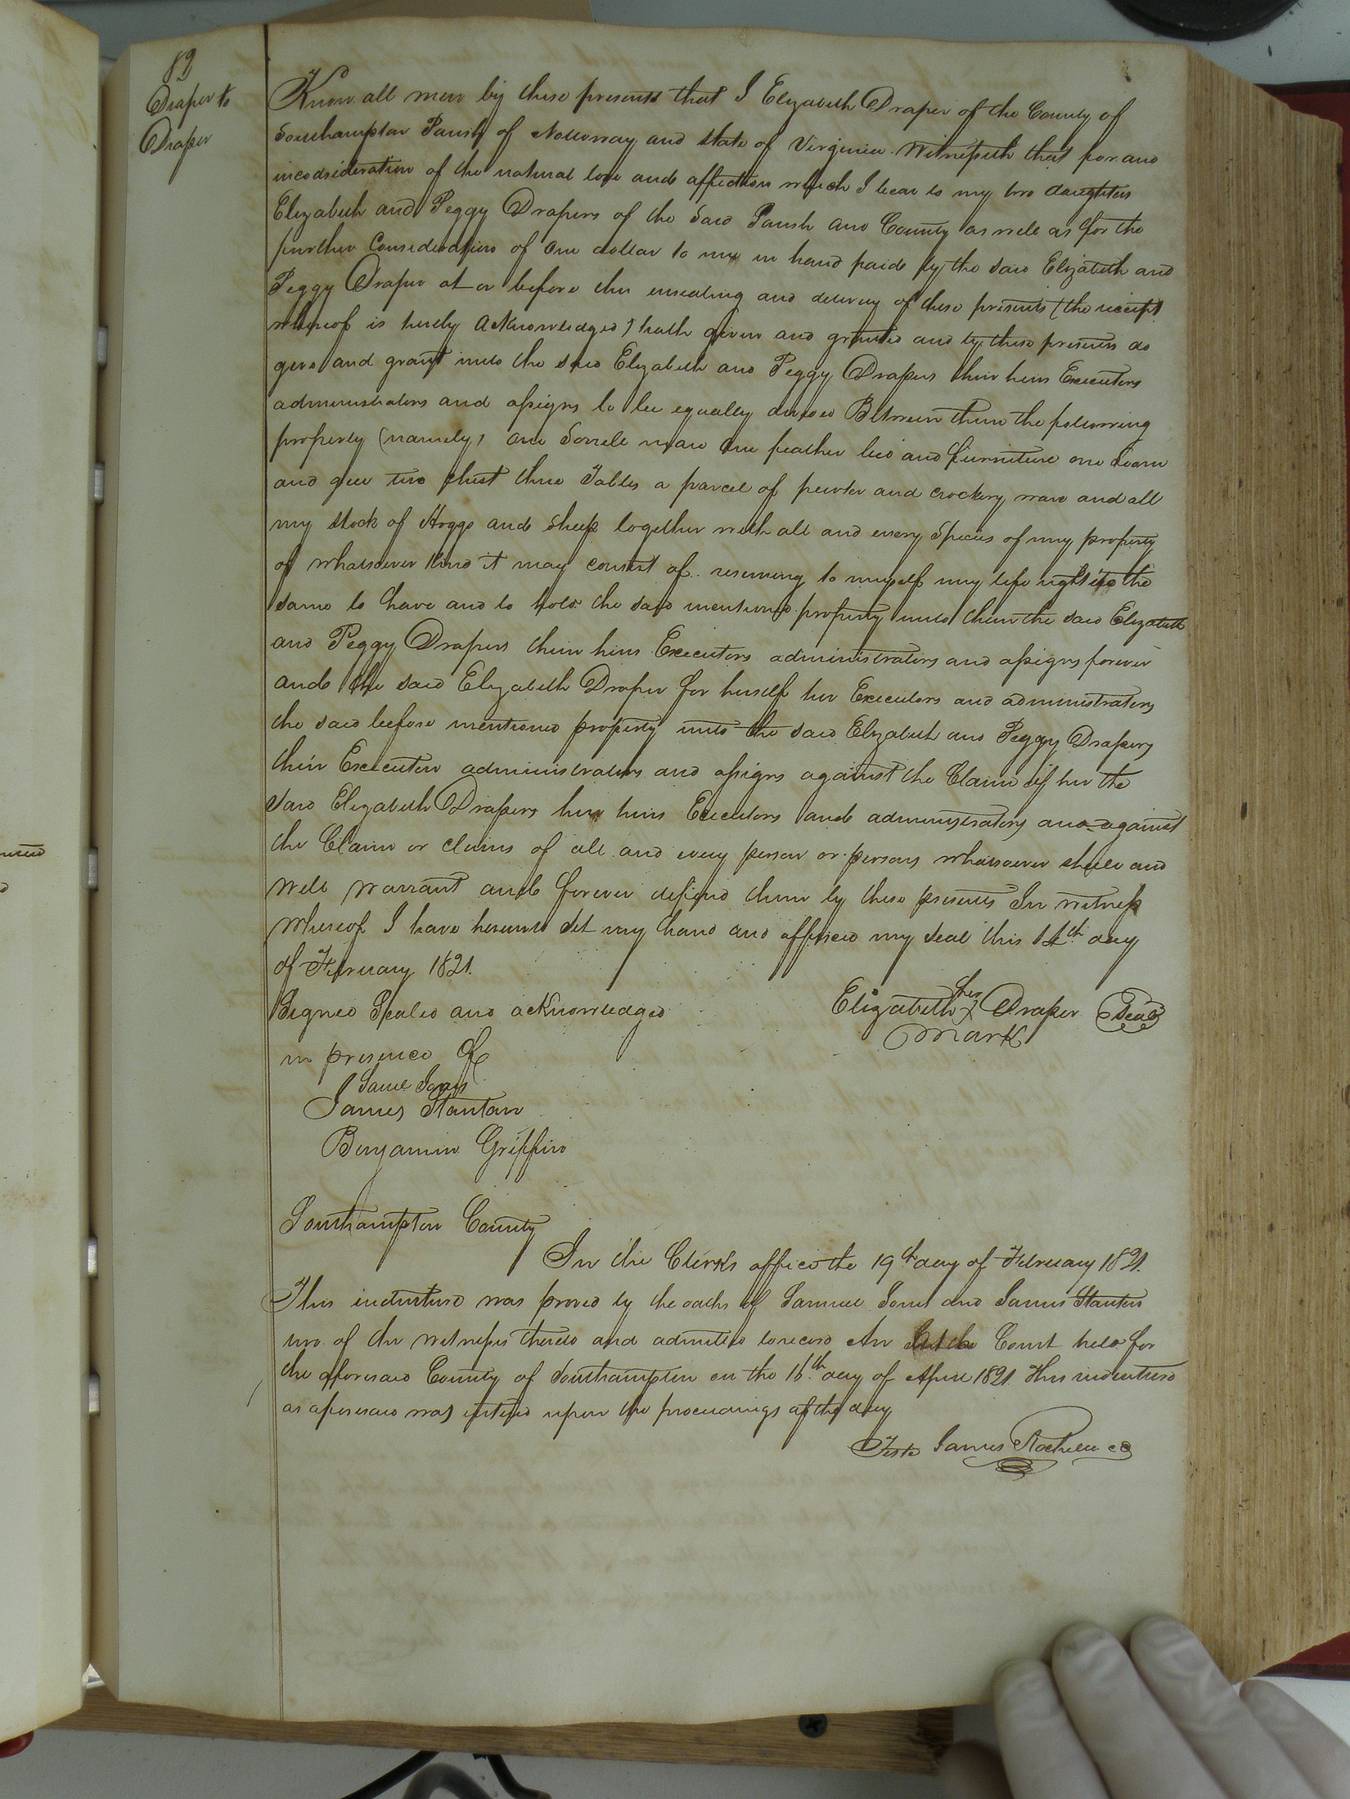 82
Draper to
Draper
Know all men by these presents that I Elizabeth Draper of the County of
Southampton Parish of Nottoway and State of Virginia Witnesseth that for and
inconsideration of the natural love and affection which I bear to my two daughters
Elizabeth and Peggy Drapers of the Said Parish and County as well as for the
further Consideration of one dollar to me in hand paid by the said Elizabeth and
Peggy Draper at or before the ensealing and delivery of these presents (the receipt
whereof is hereby acknowledged) hath given and granted and by these presents do
give and grant unto the said Elizabeth and Peggy Drapers their heirs Executors
administrators and assigns to be equally divided Between them the following
property (namely) one Sorrell mare one feather bed and furniture one Loom
and geer two chest three Tables a parcel of pewter and crockery ware and all
my stock of Hoggs and Sheep together with all and every Species of my property
of whatsoever kind it may consist of reserving to myself my life right to the
same to have and to hold the said mentioned property unto them the said Elizabeth
and Peggy Drapers their heirs Executors administrators and assigns forever
and the said Elizabeth Draper for herself her Executors and administrators
the said before mentioned property unto the said Elizabeth and Peggy Drapers
their Executors administrators and assigns against the Claim of her the
said Elizabeth Drapers her heirs Executors and administrators and against
the Claim or claims of all and every person or persons whatsoever shall and
will warrant and forever defend them by these presents In witness
whereof I have hereunto Set my hand and affixed my seal this 14th day
of February 1821.
Signed Sealed and acknowledged
in presence of
Elizabeth her X Draper Seal
mark
Saml Jones
James Stanton
Benjamin Griffin
Southampton County
In the Clerks office the 19th day of February 1821.
This indenture was proved by the oaths of Samuel and James Stanton
two of the witnesses thereto and admitted to record And at the Court held for
the afforesaid County of Southampton on the 16th day of April 1821 This indenture
as aforesaid was entered upon the proceedings of the day
Teste James Rochelle cc